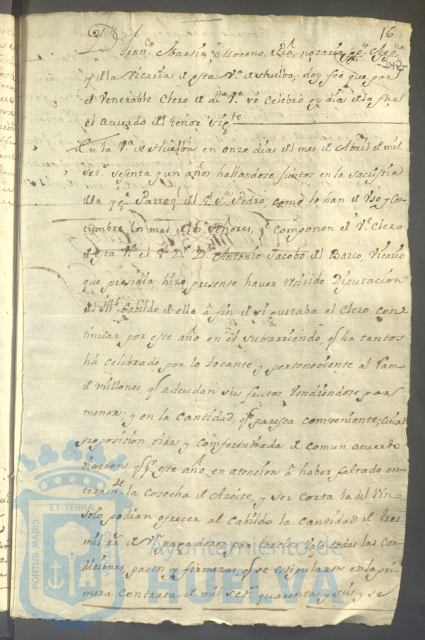 16
Fran.co Martin Moreno, Pu.co notario
q.e de la Vicaria de esta V.a de Huelba, doy feé que por
el Venerable Clero de d.ha V.a se Celebró oy dia de la fha
el acuerdo del tenor Sig.te
En la V.a de Huelba en onze dias del mes de Abril de mil
Set.s sesenta y un años hallandose juntos en la Sacristia
de la Parroq.l del S.r Sn. Pedro, como lo han de Uso y Cos-
tumbre los mas de los Señores q.e componen el V.e Clero
de esta V.a el S.r D.r D. Antonio Jacobo del Barco, Vicario
que presidia hizo presente haver Venido Diputacion
del Cabildo de ella á fin de si gustaba el Clero con
tinuar por este año en el Subarriendo, q.e ha tantos
há celebrado por lo tocante, y perteneciente al Ramo
de millones q.e adeudan sus frutos Vendiendose por
menor; y en la Cantidad, q.e paresca combeniente; Cuia
proposicion oida y Conferenciada de comun acuerdo
dixeron, q.e este año en atencion á haber faltado en
teram.te la Cosecha de Azeite, y Ser Corta la del Vino
Solo podian ofrecer al Cabildo la Cantidad de tres
mil
diciones, pactos y firmezas, q.e se estipularon en la pri
mera Contrata de mil Set.s quarenta y Seis y se
PORTUS MARIS ET TERRÆ
Ayuntamiento de
HUELVA